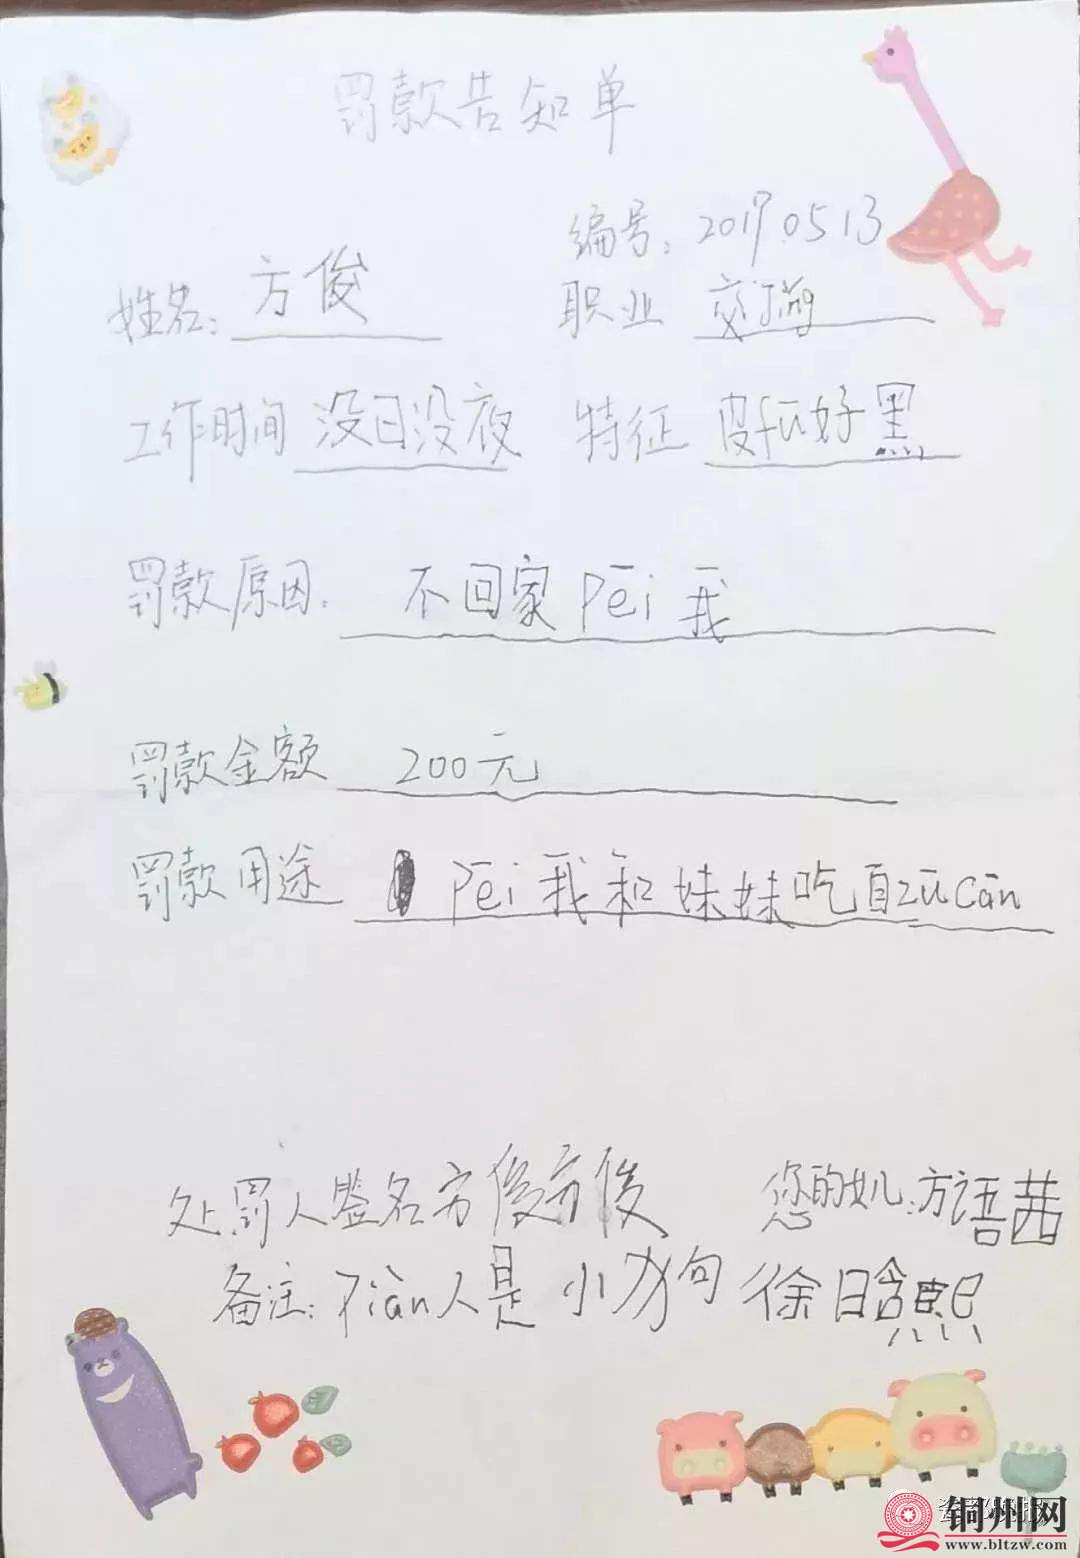 罚款告知单
编号：20170513
姓名：方俊 职业 交jǐng
工作时间 没日没夜 特征 皮fū好黑
罚款原因：不回家Péi我
罚款金额 200元
罚款用途 Péi我和妹妹吃自zūcān
处罚人签名方俊方俊 您的女儿：方语茜
备注：Piàn人是小狗 徐晗熙
铜州网
www.bltzw.com